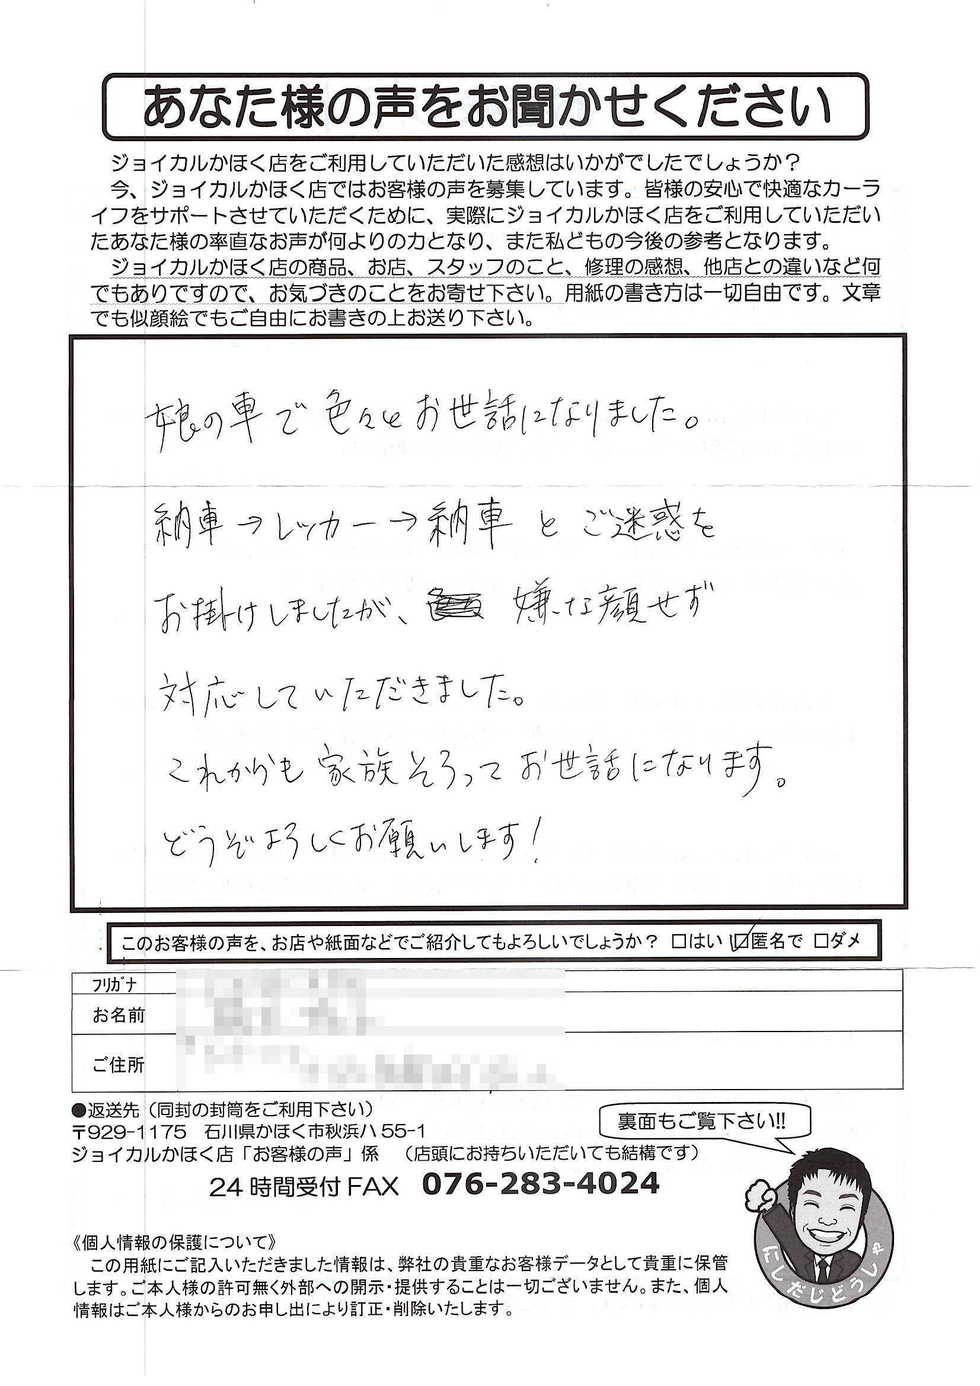 あなた様の声をお聞かせください
ジョイカルかほく店をご利用していただいた感想はいかがでしたでしょうか？
今、ジョイカルかほく店ではお客様の声を募集しています。皆様の安心で快適なカーラ
イフをサポートさせていただくために、実際にジョイカルかほく店をご利用していただい
たあなた様の率直なお声が何よりの力となり、また私どもの今後の参考となります。
ジョイカルかほく店の商品、お店、スタッフのこと、修理の感想、他店との違いなど何
でもありですので、お気づきのことをお寄せ下さい。用紙の書き方は一切自由です。文章
でも似顔絵でもご自由にお書きの上お送り下さい。
娘の車で色々とお世話になりました。
納車→レッカー→納車とご迷惑を
お掛けしましたが、嫌な顔せず
対応していただきました。
これからも家族そろってお世話になります。
どうぞよろしくお願いします！
このお客様の声を、お店や紙面などでご紹介してもよろしいでしょうか？ □はい ☑匿名で □ダメ
フリガナ
お名前
ご住所
●返送先（同封の封筒をご利用下さい）
〒929-1175 石川県かほく市秋浜ハ55-1
ジョイカルかほく店「お客様の声」係 （店頭にお持ちいただいても結構です）
24時間受付FAX 076-283-4024
裏面もご覧下さい!!
にしだじどうしゃ
《個人情報の保護について》
この用紙にご記入いただきました情報は、弊社の貴重なお客様データとして貴重に保管
します。ご本人様の許可無く外部への開示・提供することは一切ございません。また、個人
情報はご本人様からのお申し出により訂正・削除いたします。